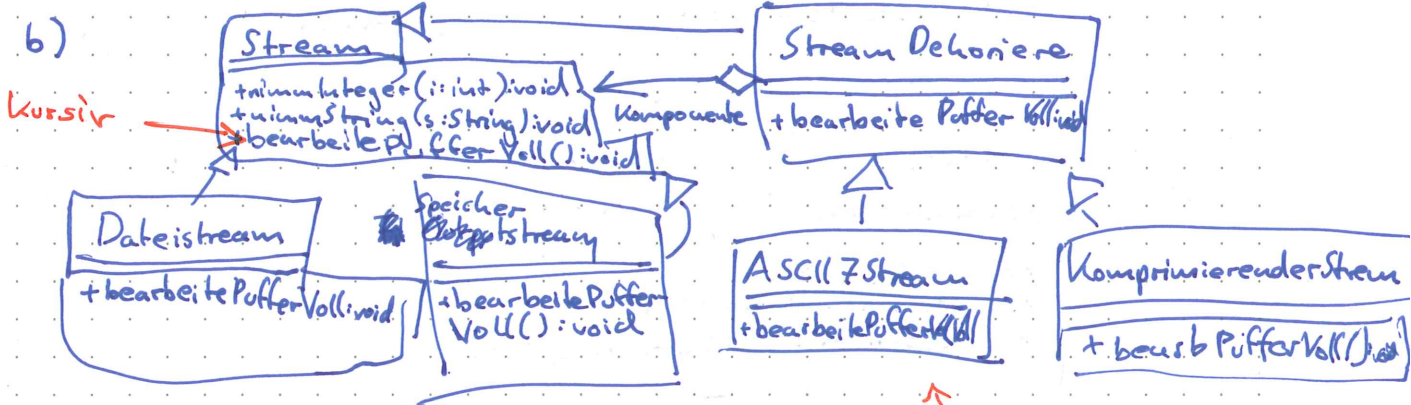 b)
Stream
+nimmInteger(i:int):void
+nimmString(s:String):void
+bearbeitePufferVoll():void
Kursiv
Komponente
Stream Dekoriere
+bearbeite Puffer Voll:void
Dateistream
+bearbeitePufferVoll:void
Speicher
stream
+bearbeitePuffer
Voll():void
ASCII7Stream
+bearbeitePuffer
KomprimierenderStrem
+bearb PufferVoll():void